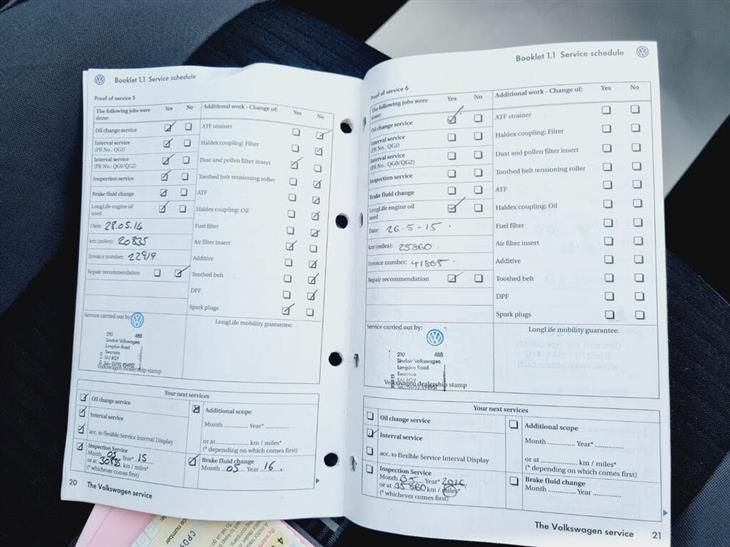 Booklet 1.1 Service schedule
Proof of service 5
The following jobs were done:
Yes No
Additional work - Change of:
Yes No
Oil change service
Interval service
(PR No. QG1)
Interval service
(PR No. QG0/QG2)
Inspection service
Brake fluid change
LongLife engine oil
used
Date: 28.05.14
km (miles): 20835
Invoice number: 22919
Repair recommendation
ATF strainer
Haldex coupling: Filter
Dust and pollen filter insert
Toothed belt tensioning roller
ATF
Haldex coupling: Oil
Fuel filter
Air filter insert
Additive
Toothed belt
DPF
Spark plugs
Service carried out by:
LongLife mobility guarantee:
210 488
Sinclair Volkswagen
Langdon Road
Swansea
SA1 8QY
Volkswagen dealership stamp
Your next services
Oil change service
Interval service
acc. to flexible Service Interval Display
Inspection Service
Month 05 Year* 15
or at km / miles*
(* whichever comes first)
Additional scope
Month Year*
or at km / miles*
(* depending on which comes first)
Brake fluid change
Month 05 Year 16
20 The Volkswagen service
Booklet 1.1 Service schedule
Proof of service 6
The following jobs were done:
Yes No
Additional work - Change of:
Yes No
Oil change service
Interval service
(PR No. QG1)
Interval service
(PR No. QG0/QG2)
Inspection service
Brake fluid change
LongLife engine oil
used
Date: 26-5-15
km (miles): 25860
Invoice number: 41805
Repair recommendation
ATF strainer
Haldex coupling: Filter
Dust and pollen filter insert
Toothed belt tensioning roller
ATF
Haldex coupling: Oil
Fuel filter
Air filter insert
Additive
Toothed belt
DPF
Spark plugs
Service carried out by:
LongLife mobility guarantee:
210 488
Sinclair Volkswagen
Langdon Road
Swansea
SA1 8QY
Volkswagen dealership stamp
Your next services
Oil change service
Interval service
acc. to flexible Service Interval Display
Inspection Service
Month 05 Year* 2016
or at km / miles*
(* whichever comes first)
Additional scope
Month Year*
or at km / miles*
(* depending on which comes first)
Brake fluid change
Month Year
The Volkswagen service 21